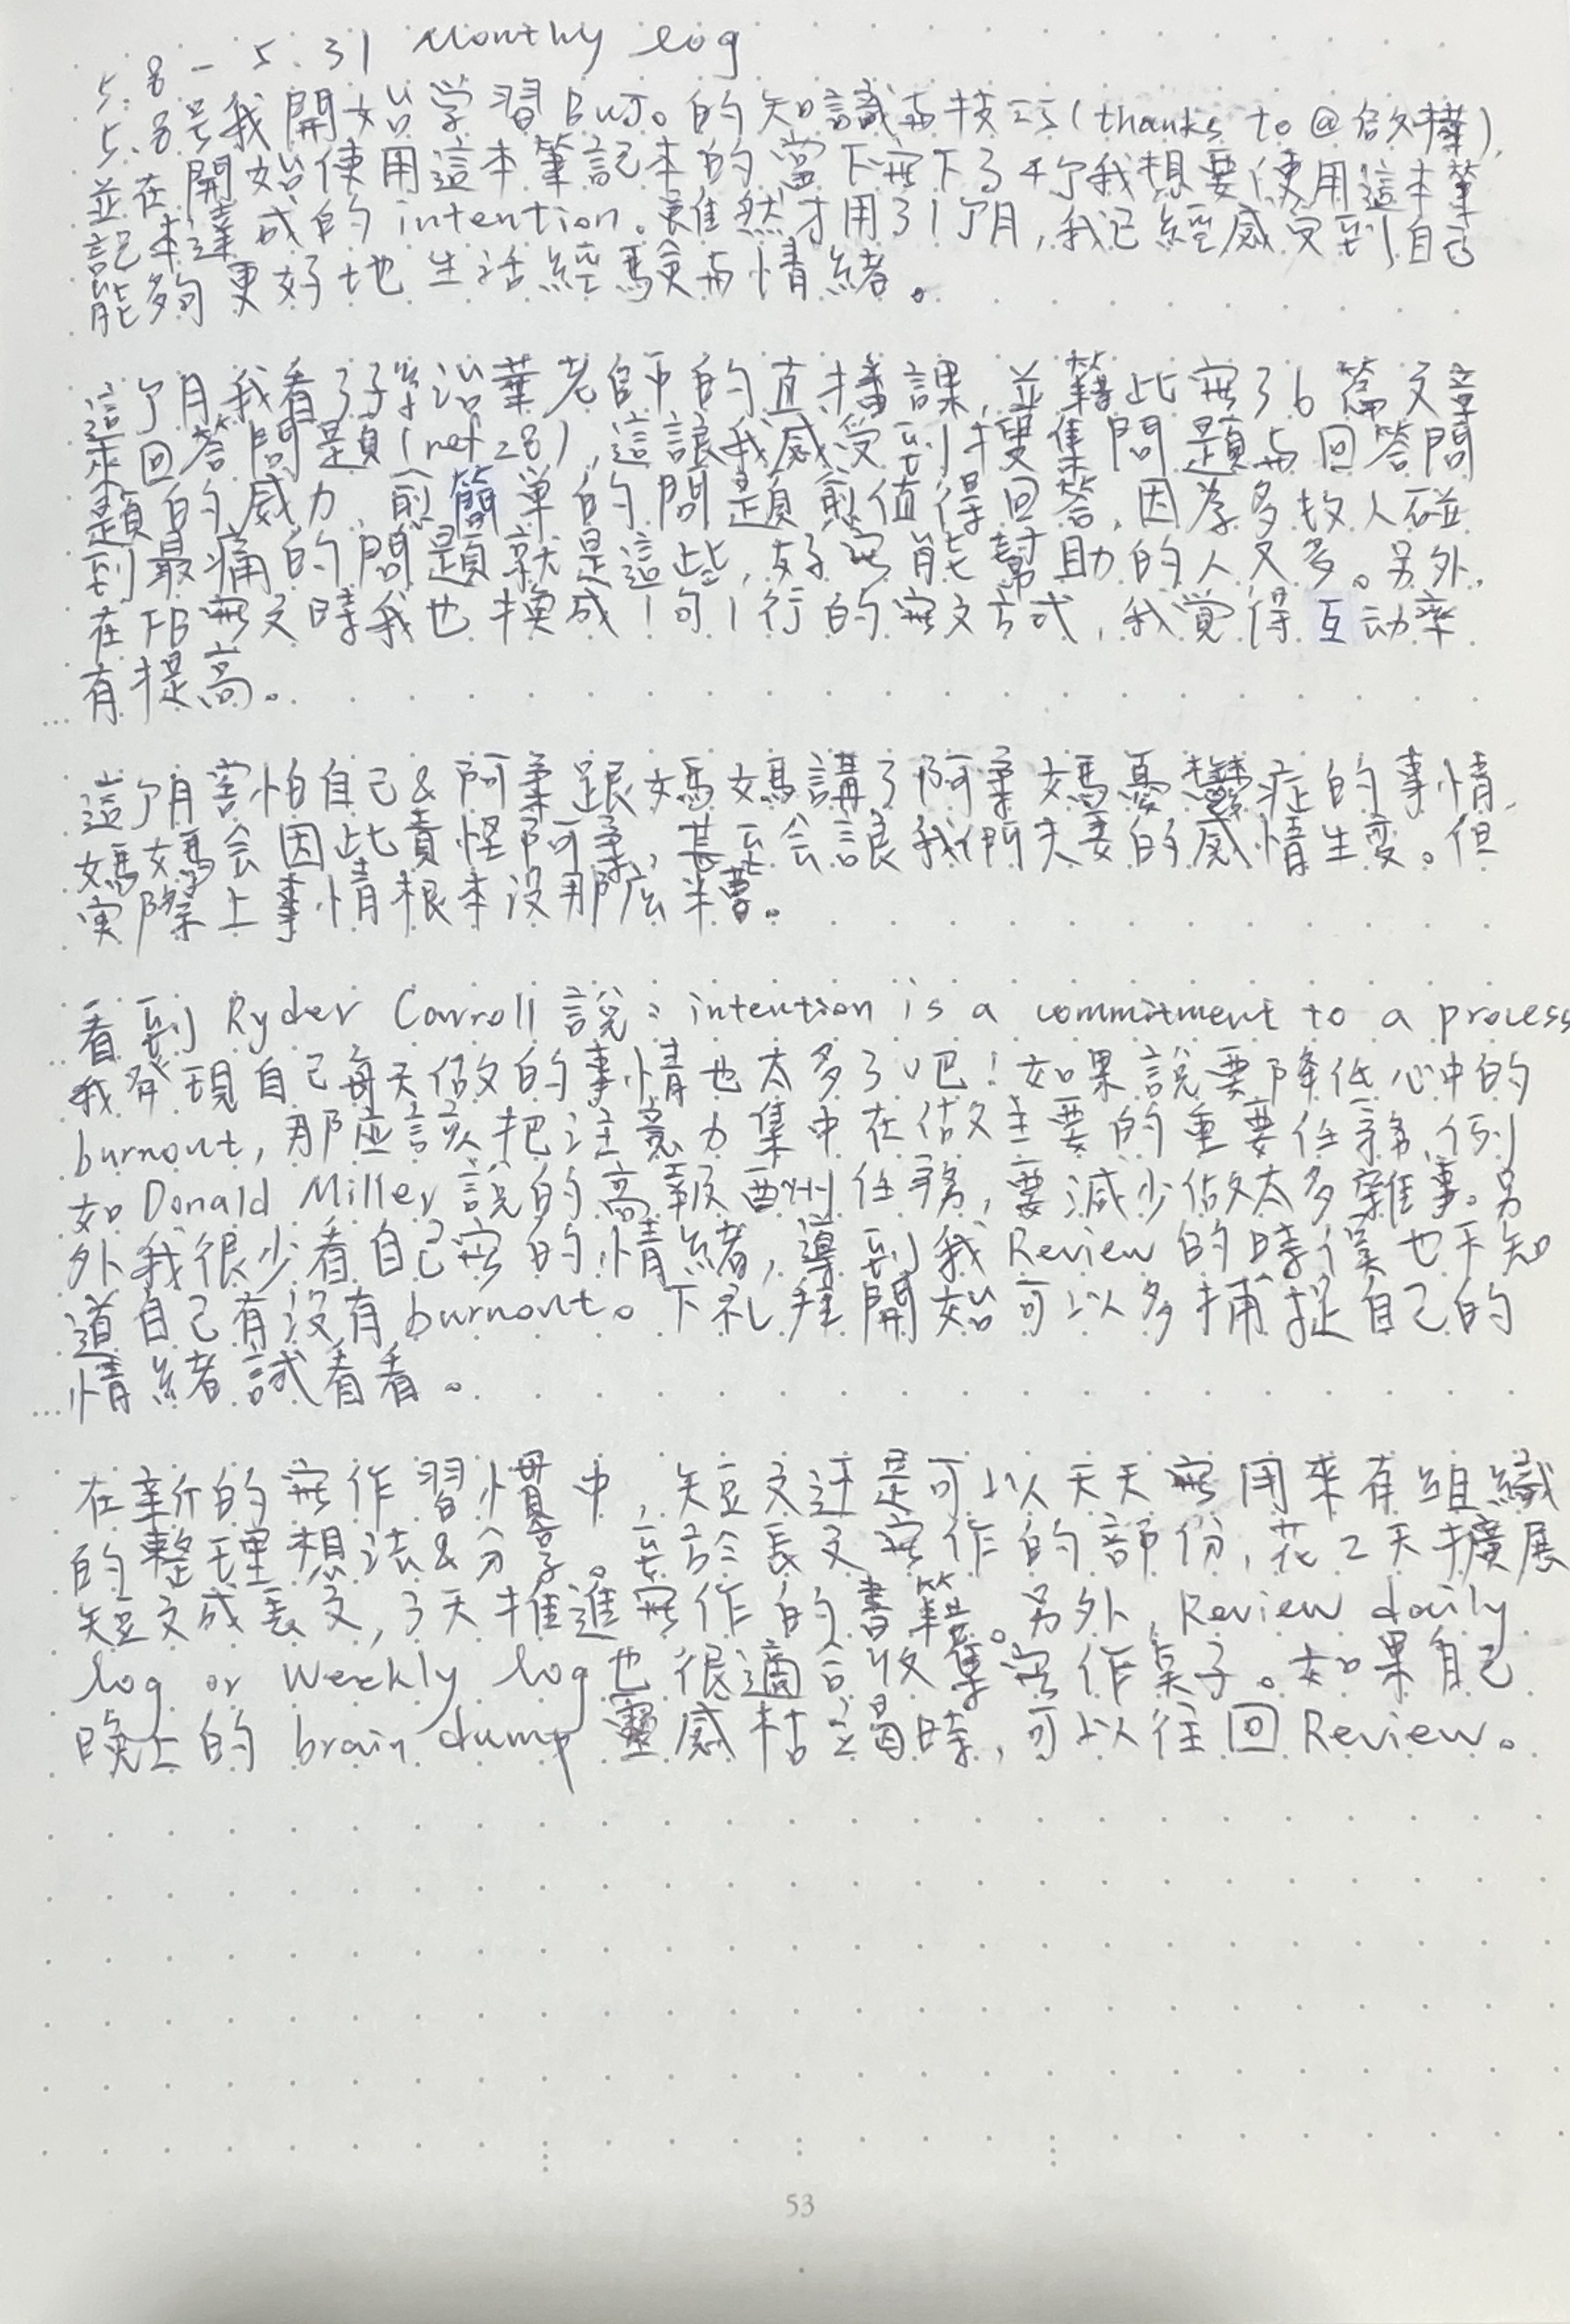 5.8 - 5.31 Monthly log
5.8号我開始学習BuJo的知識与技巧(thanks to @啟樺),
並在開始使用這本筆記本的當下寫下了I个我想要使用這本筆
記本達成的intention。雖然才用了1个月,我已經感受到自己
能夠更好地生活經驗与情緒。
這个月我看了孫治華老師的直播課,並藉此寫了6篇文章
來回答問題(ref 28),這讓我感受到搜集問題与回答問
題的威力,愈簡単的問題愈值得回答,因為多数人碰
到最痛的問題就是這些,好寫能幫助的人又多。另外,
在FB寫文時我也換成1句1行的寫文方式,我覺得互动率
有提高。
這个月害怕自己&阿柔跟媽媽講了阿柔媽憂鬱症的事情,
媽媽会因此責怪阿柔,甚至会讓我們夫妻的感情生変。但
実際上事情根本沒那麼糟。
看到Ryder Carroll說:intention is a commitment to a process
我發現自己每天做的事情也太多了吧!如果說要降低心中的
burnout,那应該把注意力集中在做主要的重要任務,例
如Donald Miller說的高報酬任務,要減少做太多雜事。另
外我很少看自己寫的情緒,導到我Review的時候也不知
道自己有沒有burnout。下礼拜開始可以多捕捉自己的
情緒試看看。
在新的寫作習慣中,短文还是可以天天寫用來有組織
的整理想法&分享。至於長文寫作的部份,花2天擴展
短文成長文,3天推進寫作的書籍。另外,Review daily
log or Weekly log也很適合收集寫作桌子。如果自己
晚上的brain dump靈感枯竭時,可以往回Review。
53